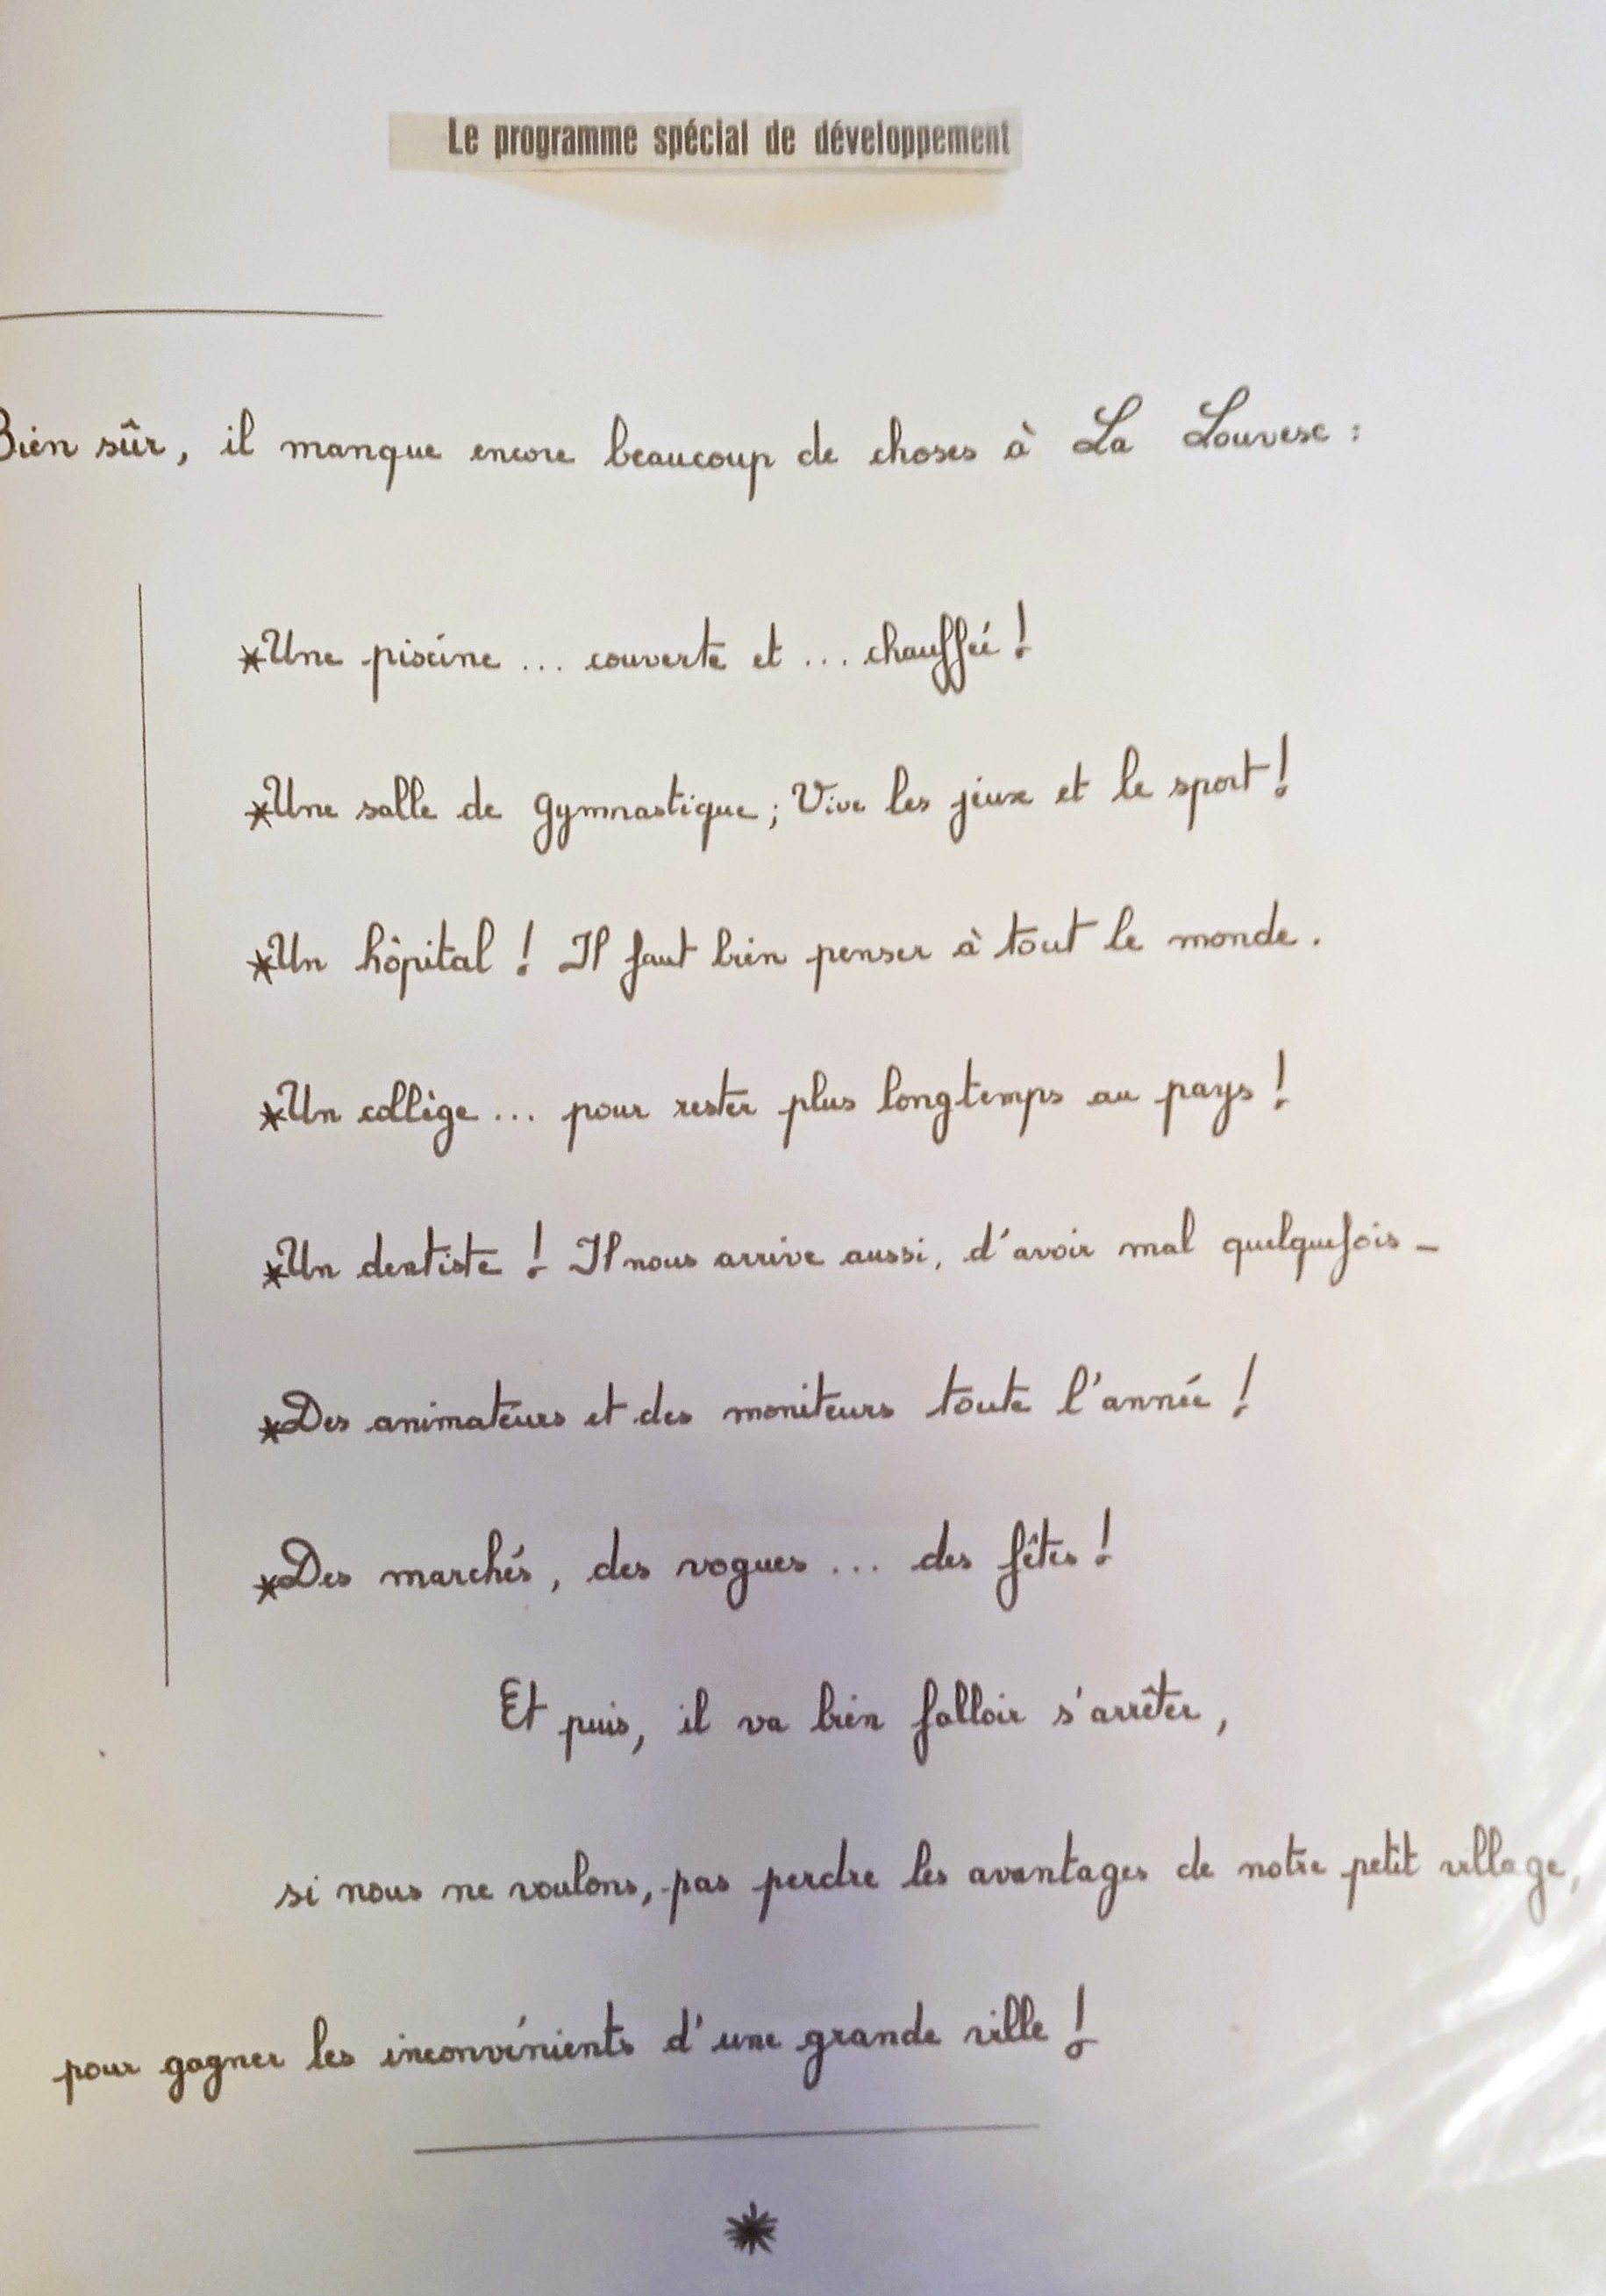 Le programme spécial de développement
Bien sûr, il manque encore beaucoup de choses à La Louvesc :
*Une piscine ... couverte et ... chauffée !
*Une salle de gymnastique ; Vive les jeux et le sport !
*Un hôpital ! Il faut bien penser à tout le monde .
*Un collège ... pour rester plus longtemps au pays !
*Un dentiste ! Il nous arrive aussi, d'avoir mal quelquefois -
*Des animateurs et des moniteurs toute l'année !
*Des marchés, des vogues ... des fêtes !
Et puis, il va bien falloir s'arrêter,
si nous ne voulons, pas perdre les avantages de notre petit village,
pour gagner les inconvénients d'une grande ville !